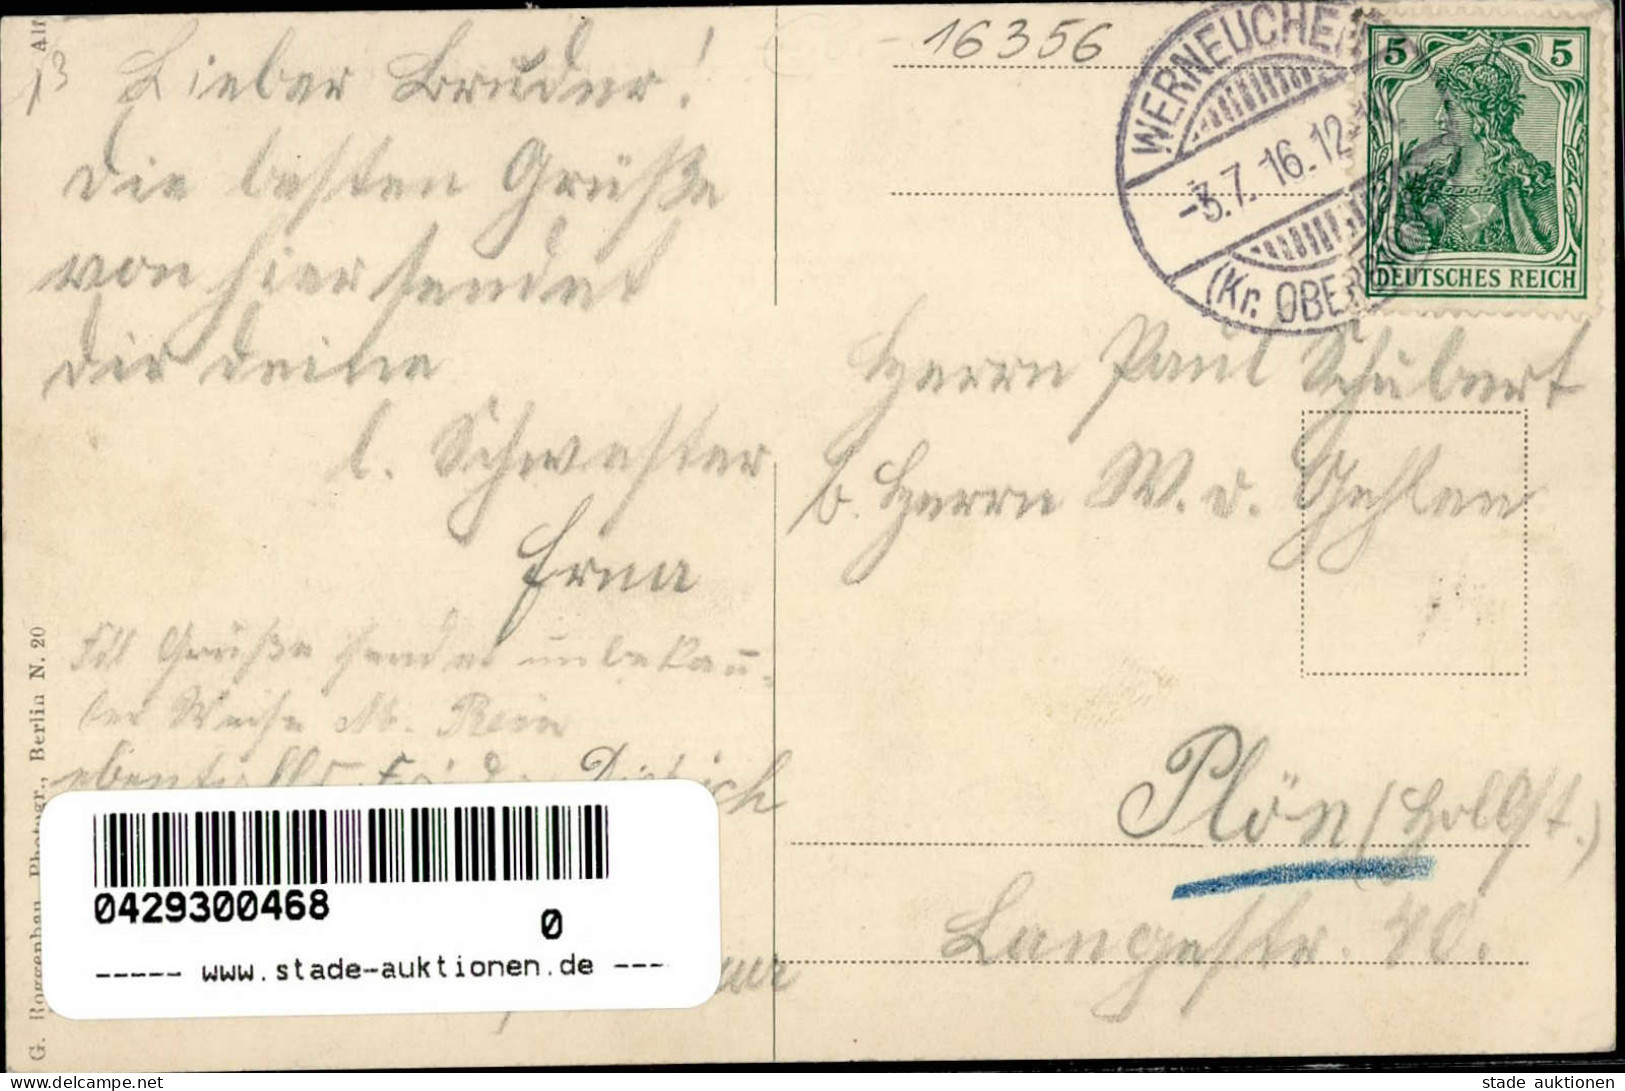 16356
13
Lieber Bruder!
die besten Grüße
von hier sendet
dir deine
l. Schwester
Erna
Grüße sendet unbekan-
ter Weise
ebenfalls Dietrich
WERNEUCHEN
-3.7.16.12
(Kr. OBER
5 5
DEUTSCHES REICH
Herrn Paul Schubert
b. Herrn W. v. Gehlen
Plön (Holst.)
Langestr. 40.
G. Roggenbau, Photogr., Berlin N. 20
Alf
0429300468
0
----- www.stade-auktionen.de ----
delcampe.net
stade auktionen